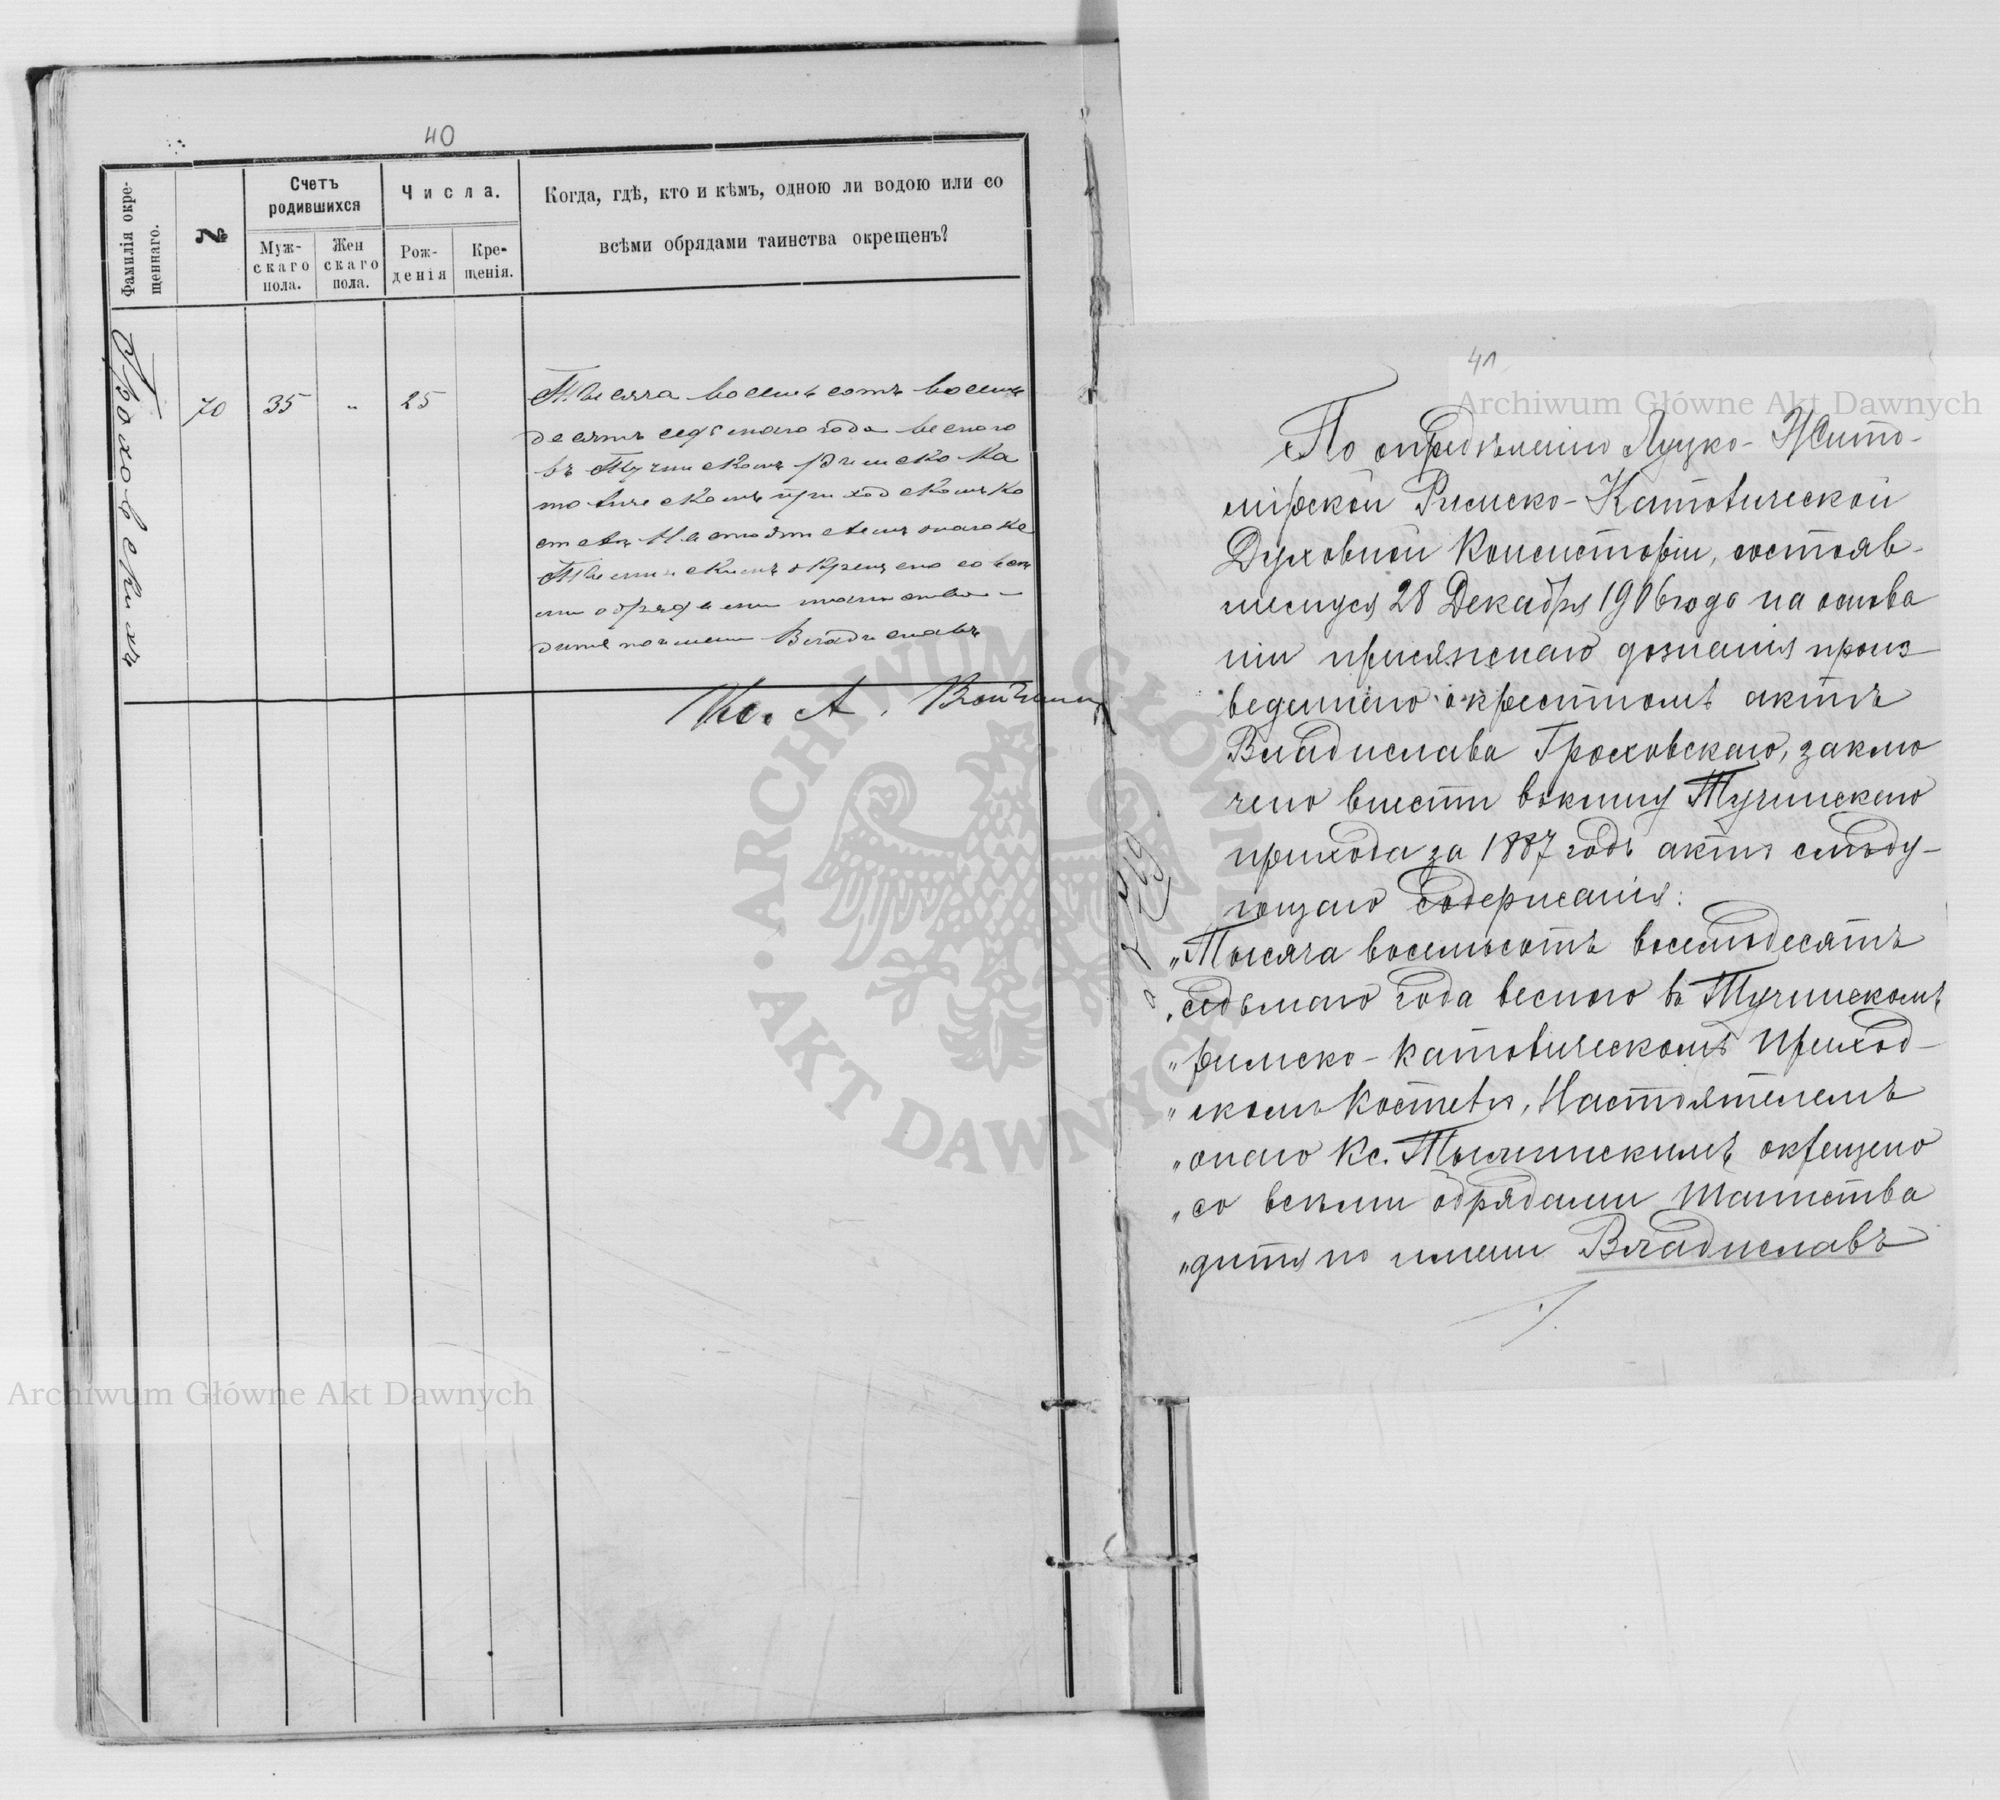 40
Фамилія окре-
щеннаго.
№
Счетъ
родившихся
Муж-
скаго
пола.
Жен
скаго
пола.
Числа.
Рож-
денія
Кре-
щенія.
Когда, гдѣ, кто и кѣмъ, одною ли водою или со
всѣми обрядами таинства окрещенъ?
Гроховскихъ
70
35
"
25
Тысяча восемьсотъ восемь
десятъ седьмаго года весною
въ Тучинскомъ Римско Ка
толическомъ приходскомъ ко
стелѣ Настоятелемъ онаго Кс
окрещено со всѣ
ми обрядами таинства
дитя по имени Владиславъ
Кс. А.
41
По опредѣленію Луцко-Жито-
мірской Римско-Католической
Духовной Консисторіи, состояв-
шемуся 28 Декабря 1906 года на основа
ніи присяжнаго дознанія произ
веденнаго о крестномъ актѣ
Владислава Гроховскаго, заклю
чено внести въ книгу Тучинскаго
прихода за 1887 годъ актъ слѣду-
ющаго содержанія:
"Тысяча восемьсотъ восемьдесятъ
"седьмаго года весною въ Тучинскомъ
"римско-католическомъ приход-
"скомъ костелѣ, Настоятелемъ
"онаго Кс. окрещено
"со всѣми обрядами таинства
"дитя по имени Владиславъ
Archiwum Główne Akt Dawnych
Archiwum Główne Akt Dawnych
ARCHIWUM GŁÓWNE AKT DAWNYCH